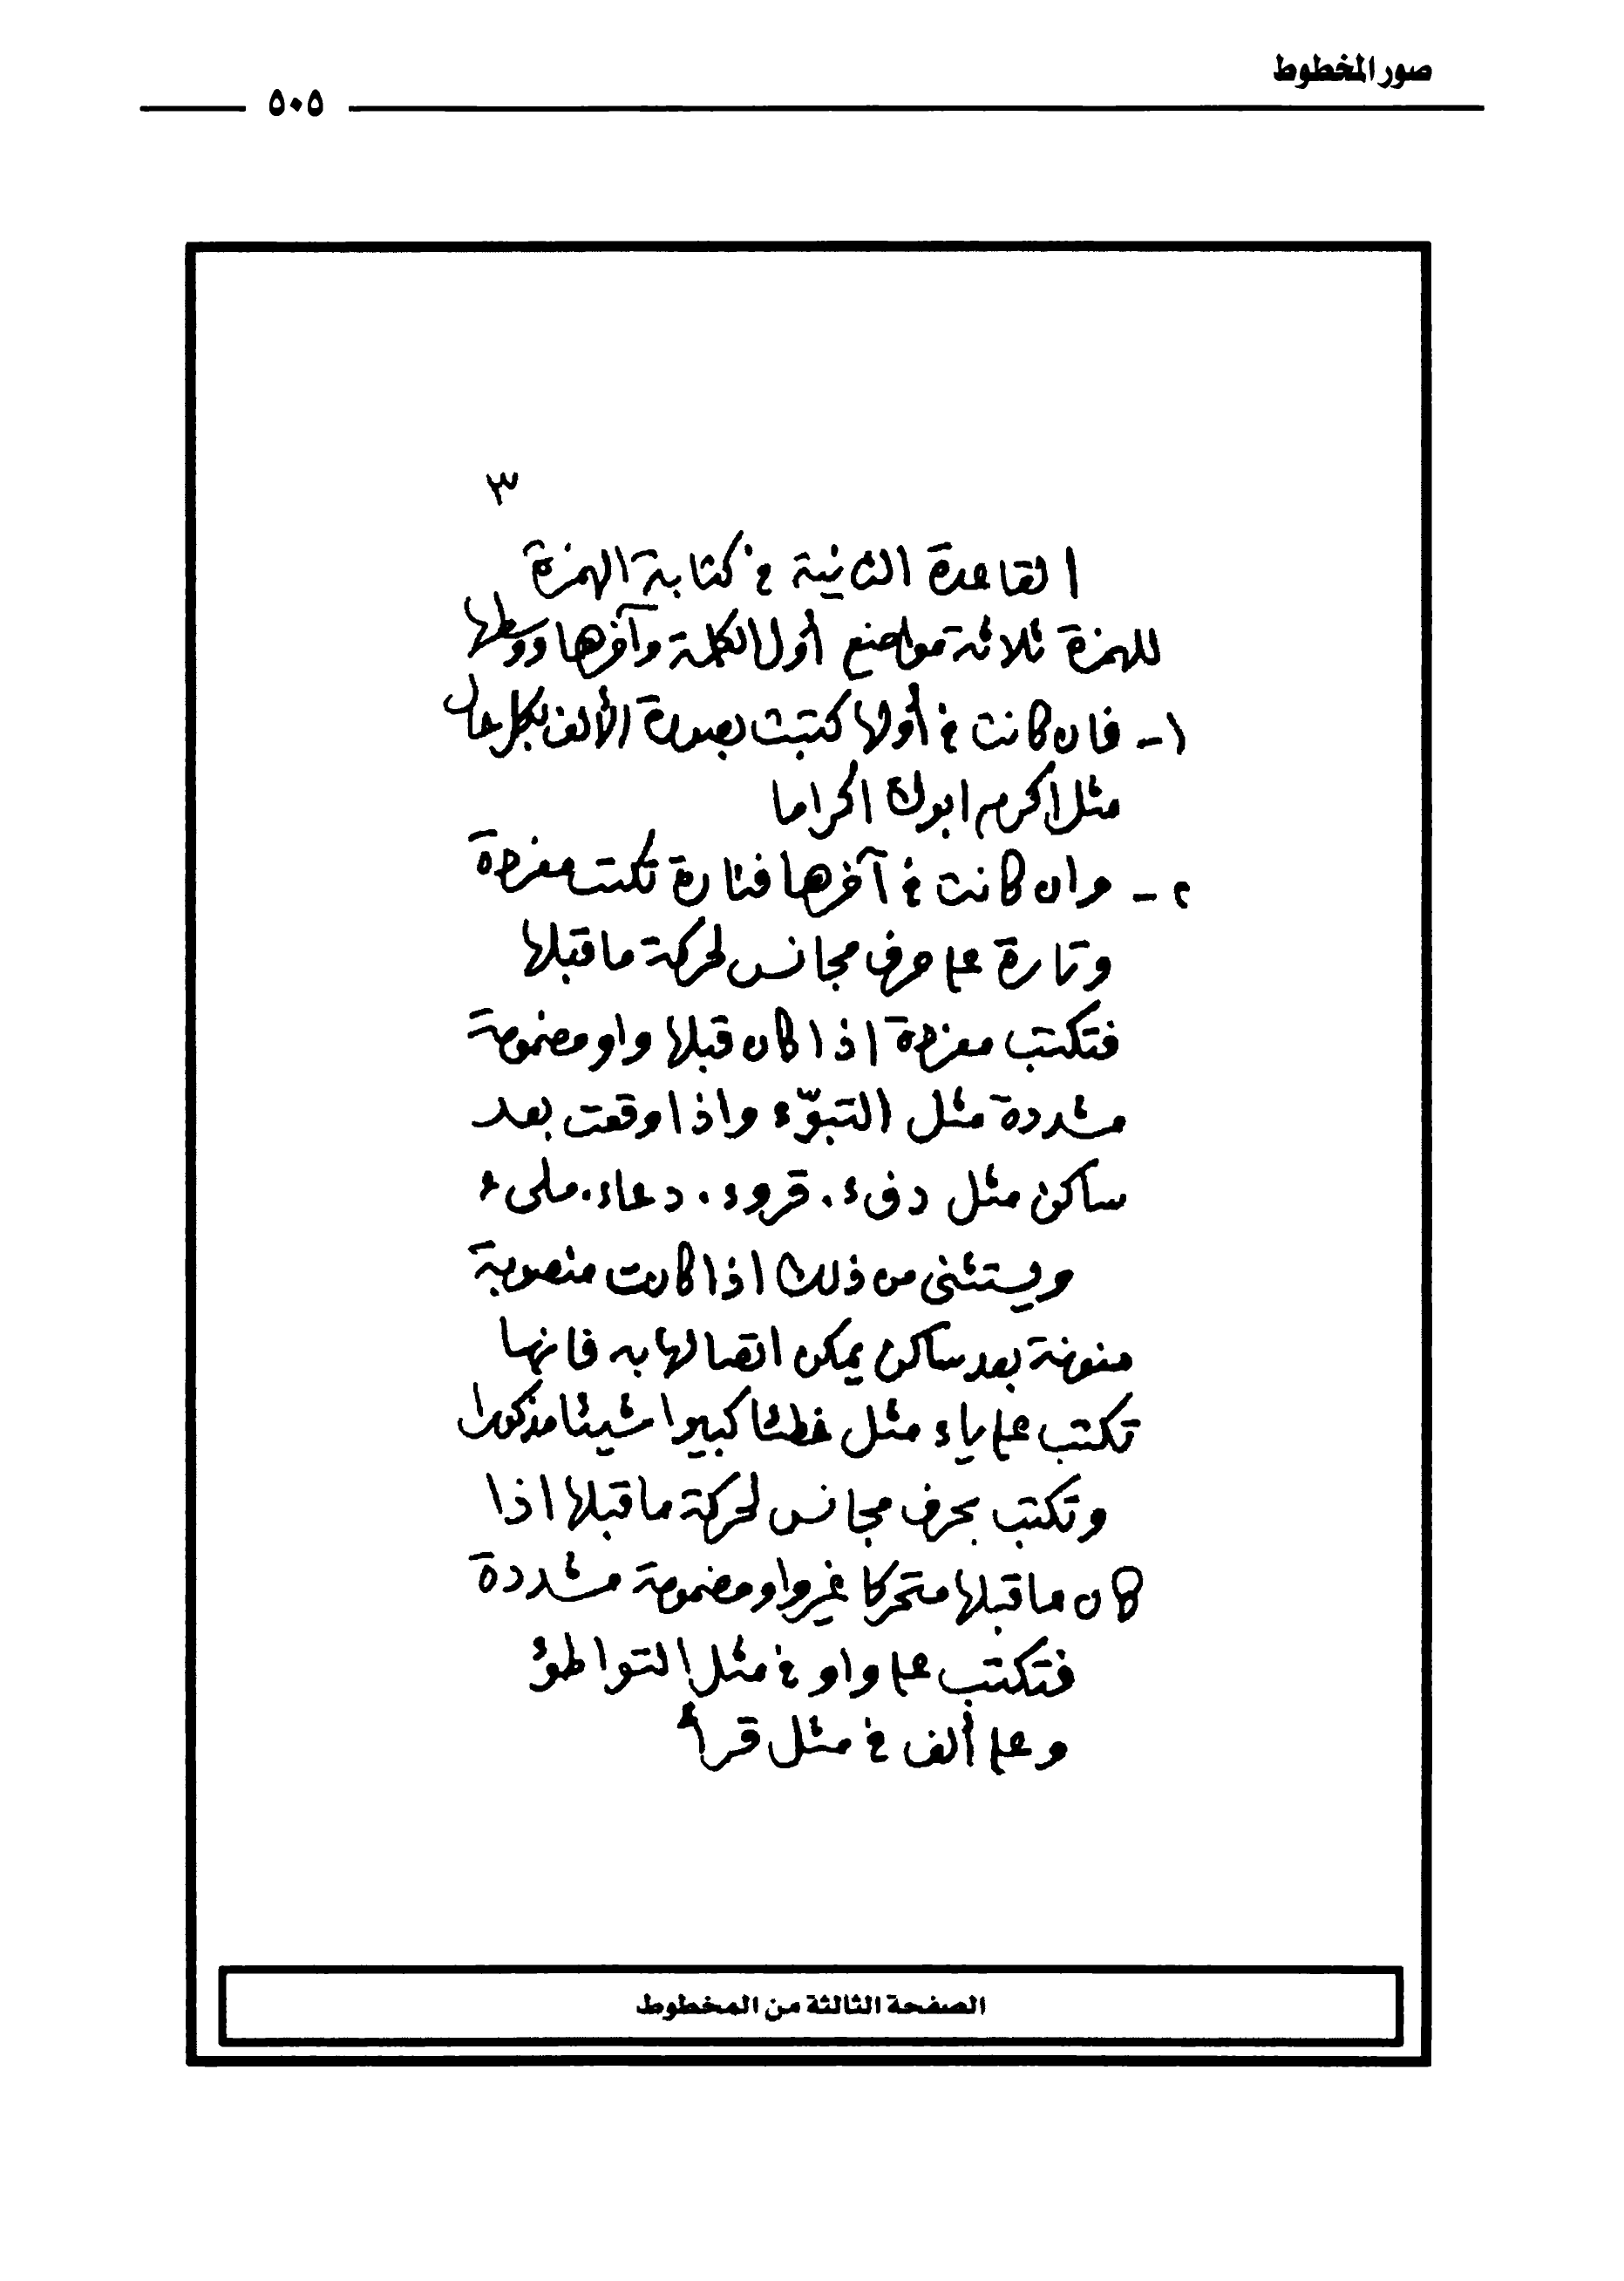 صور المخطوط
٥٠٥
٣
القاعدة الثانية في كتابة الهمزة
للهمزة ثلاثة مواضع أول الكلمة وآخرها ووسطها
١ـ فان كانت في أولها كتبت بصورة الألف بكل حال
مثل اكرم ابوك اكراما
٢ـ وان كانت في آخرها فتارة تكتب مفردة
وتارة على حرف مجانس لحركة ما قبلها
فتكتب مفردة اذا كان قبلها واو مضمومة
مشددة مثل التبوّء واذا وقعت بعد
ساكن مثل دفء. قروء. دعاء. ملىء
ويستثنى من ذلك اذا كانت منصوبة
منونة بعد ساكن يمكن اتصالها به فانها
تكتب على ياء مثل خطئا كبيرا شيئا مذكورا
وتكتب بحرف مجانس لحركة ما قبلها اذا
كان ما قبلها متحركا غير واو مضمومة مشددة
فتكتب على واو في مثل التواطؤ
وعلى ألف في مثل قرأ
الصفحة الثالثة من المخطوط